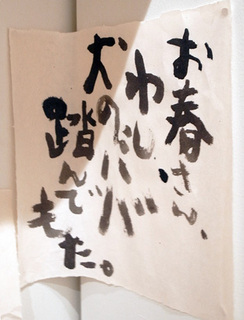 お春さん、
わし、
犬のババ
踏んで
もた。